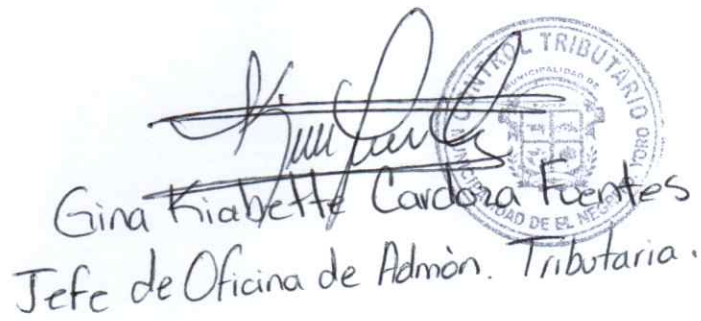 CONTROL TRIBUTARIO
MUNICIPALIDAD DE
MUNICIPALIDAD DE EL NEGRITO YORO
Gina Kiabette Cardoza Fuentes
Jefe de Oficina de Admòn. Tributaria.